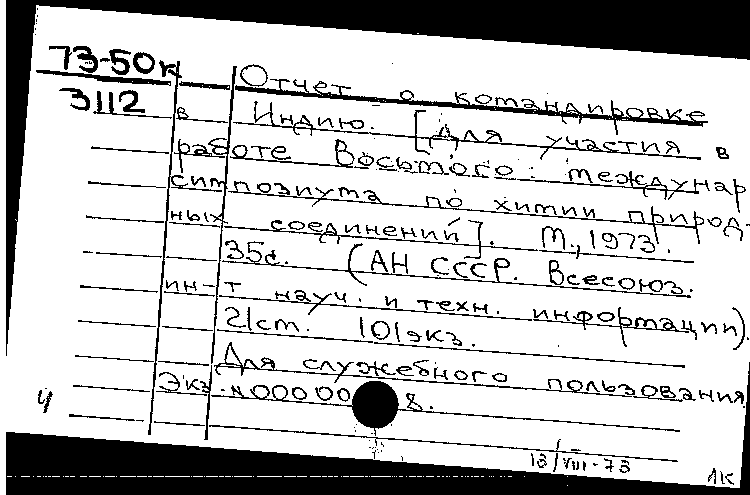 73-50к
3112
Отчет о командировке
в Индию. [Для участия в
работе Восьмого междунар
симпозиума по химии природ-
ных соединений]. М., 1973.
35с. (АН СССР. Всесоюз.
ин-т науч. и техн. информации).
21см. 101экз.
Для служебного пользования
Экз. N 00000 8.
4
13/VIII-73
ЛК